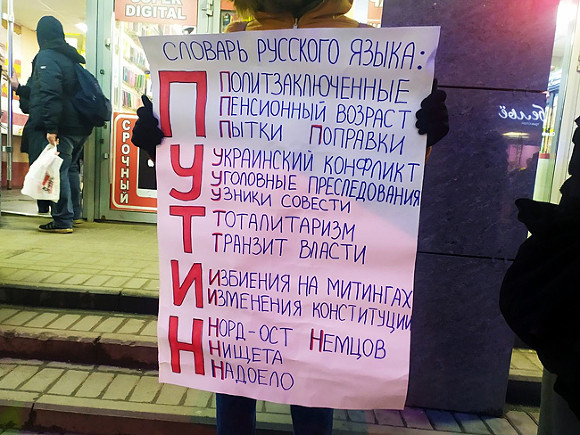 SUPER
DIGITAL
СРОЧНЫЙ
бельё
СЛОВАРЬ РУССКОГО ЯЗЫКА:
ПУТИН
ПОЛИТЗАКЛЮЧЕННЫЕ
ПЕНСИОННЫЙ ВОЗРАСТ
ПЫТКИ ПОПРАВКИ
УКРАИНСКИЙ КОНФЛИКТ
УГОЛОВНЫЕ ПРЕСЛЕДОВАНИЯ
УЗНИКИ СОВЕСТИ
ТОТАЛИТАРИЗМ
ТРАНЗИТ ВЛАСТИ
ИЗБИЕНИЯ НА МИТИНГАХ
ИЗМЕНЕНИЯ КОНСТИТУЦИИ
НОРД-ОСТ НЕМЦОВ
НИЩЕТА
НАДОЕЛО